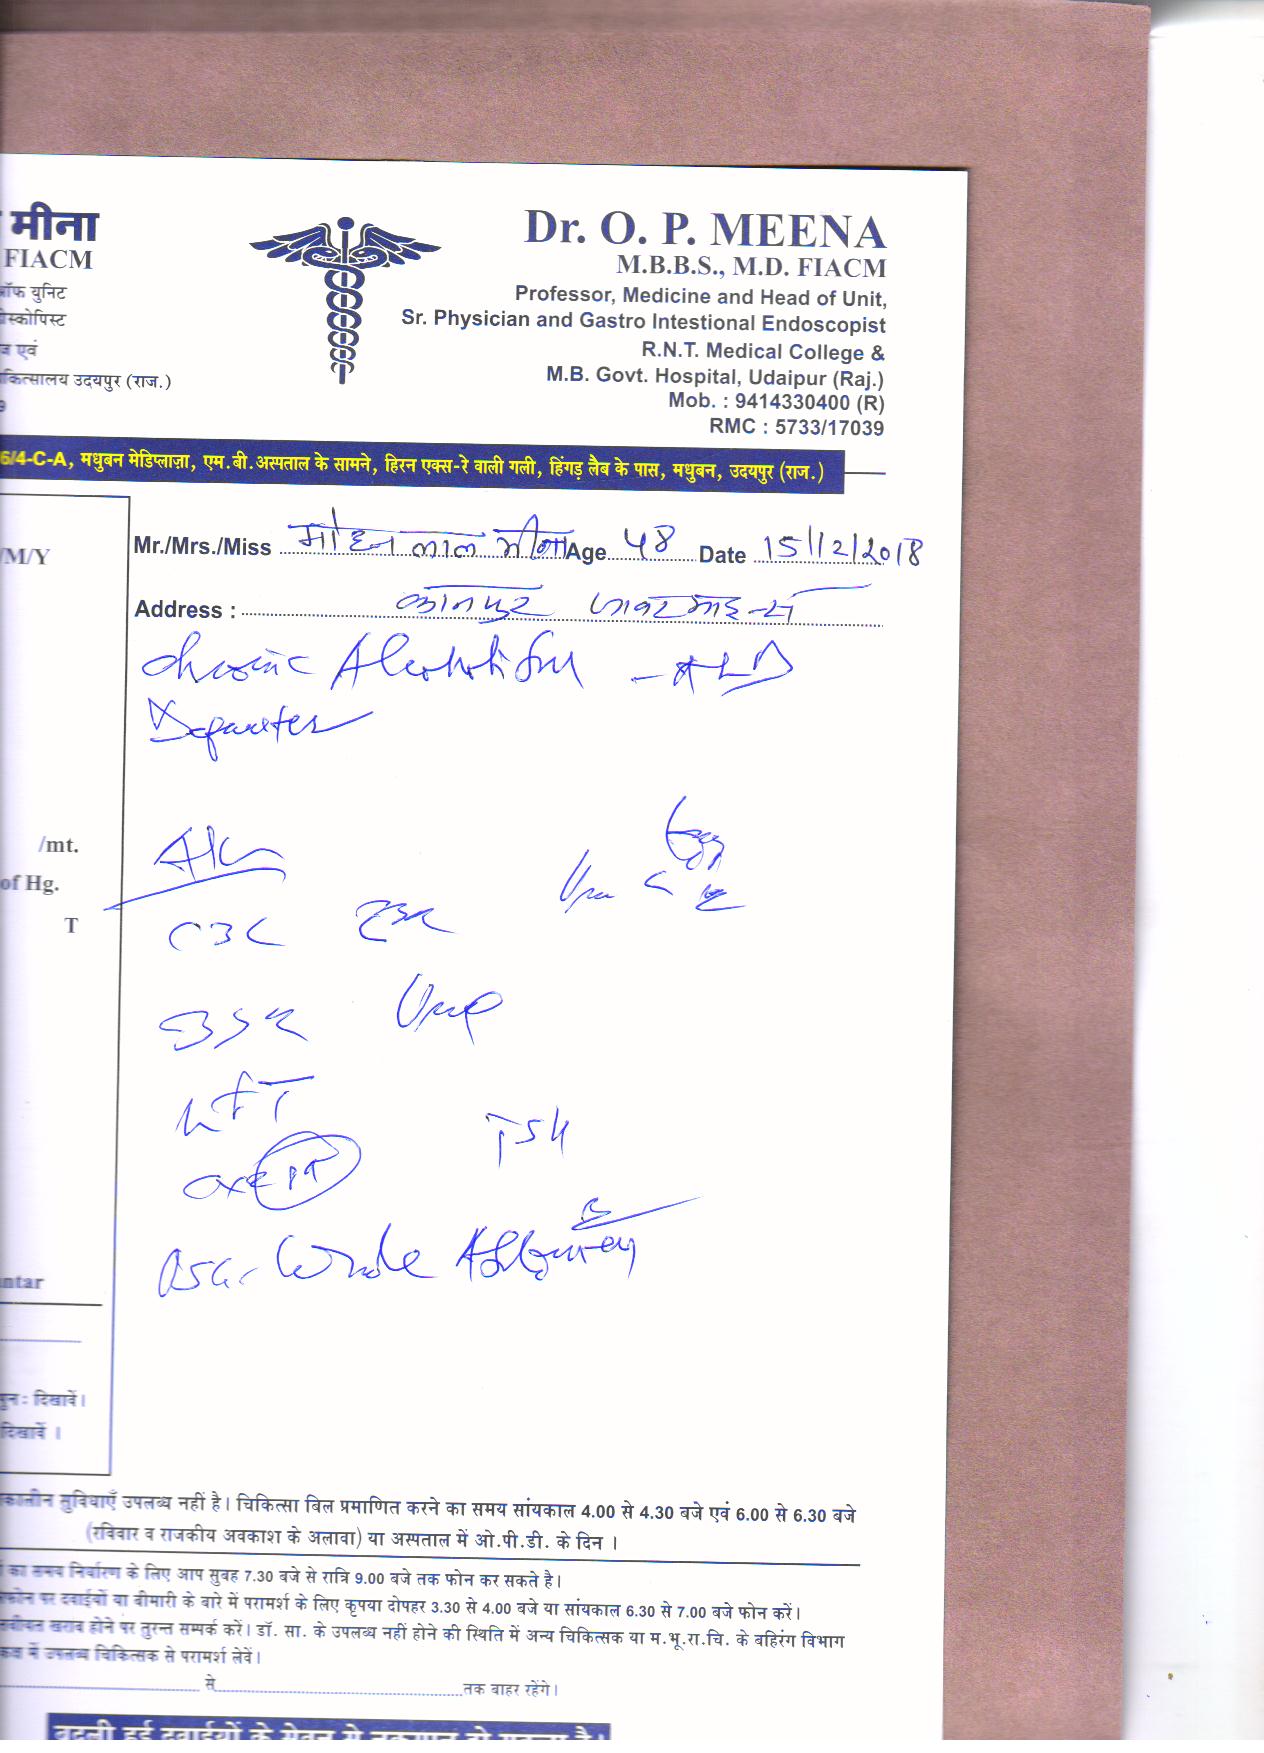 मीना
Dr. O. P. MEENA
FIACM
M.B.B.S., M.D. FIACM
ऑफ युनिट
Professor, Medicine and Head of Unit,
Sr. Physician and Gastro Intestional Endoscopist
एवं
R.N.T. Medical College &
उदयपुर (राज.)
M.B. Govt. Hospital, Udaipur (Raj.)
Mob. : 9414330400 (R)
RMC : 5733/17039
6/4-C-A, मधुबन मेडिप्लाज़ा, एम.बी.अस्पताल के सामने, हिरन एक्स-रे वाली गली, हिंगड़ लैब के पास, मधुबन, उदयपुर (राज.)
/M/Y
Mr./Mrs./Miss मोहन लाल मीणा Age 48 Date 15/12/2018
Address : कानपुर जावरमाइन्स
chronic Alcoholism - ALD
/mt.
of Hg.
T
CBC ESR
BSR
LFT
TSH
USG. Whole Abdomen
ntar
पुनः दिखावें।
दिखावें ।
सुविधाएँ उपलब्ध नहीं है। चिकित्सा बिल प्रमाणित करने का समय सांयकाल 4.00 से 4.30 बजे एवं 6.00 से 6.30 बजे
(रविवार व राजकीय अवकाश के अलावा) या अस्पताल में ओ.पी.डी. के दिन ।
का समय निर्धारण के लिए आप सुबह 7.30 बजे से रात्रि 9.00 बजे तक फोन कर सकते है।
पर दवाईयों या बीमारी के बारे में परामर्श के लिए कृपया दोपहर 3.30 से 4.00 बजे या सांयकाल 6.30 से 7.00 बजे फोन करें।
खराब होने पर तुरन्त सम्पर्क करें। डॉ. सा. के उपलब्ध नहीं होने की स्थिति में अन्य चिकित्सक या म.भू.रा.चि. के बहिरंग विभाग
में उपलब्ध चिकित्सक से परामर्श लेवें।
से तक बाहर रहेंगे।
बदली हुई दवाईयों के सेवन से नुकसान हो सकता है।